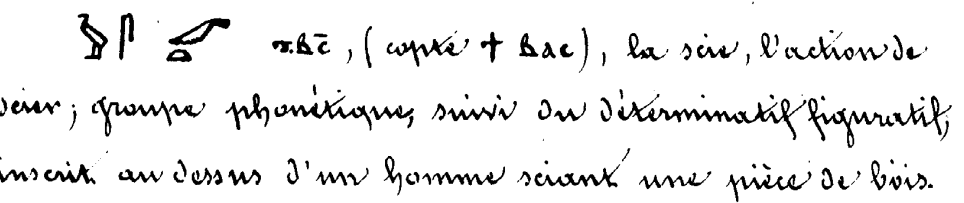 𓅱𓋴 𓏏 ⲧ.ⲃⲥ̄, (copte ϯ ⲃⲁⲥ), la scie, l'action de
scier; groupe phonétique, suivi du déterminatif figuratif,
inscrit au dessus d'un homme sciant une pièce de bois.